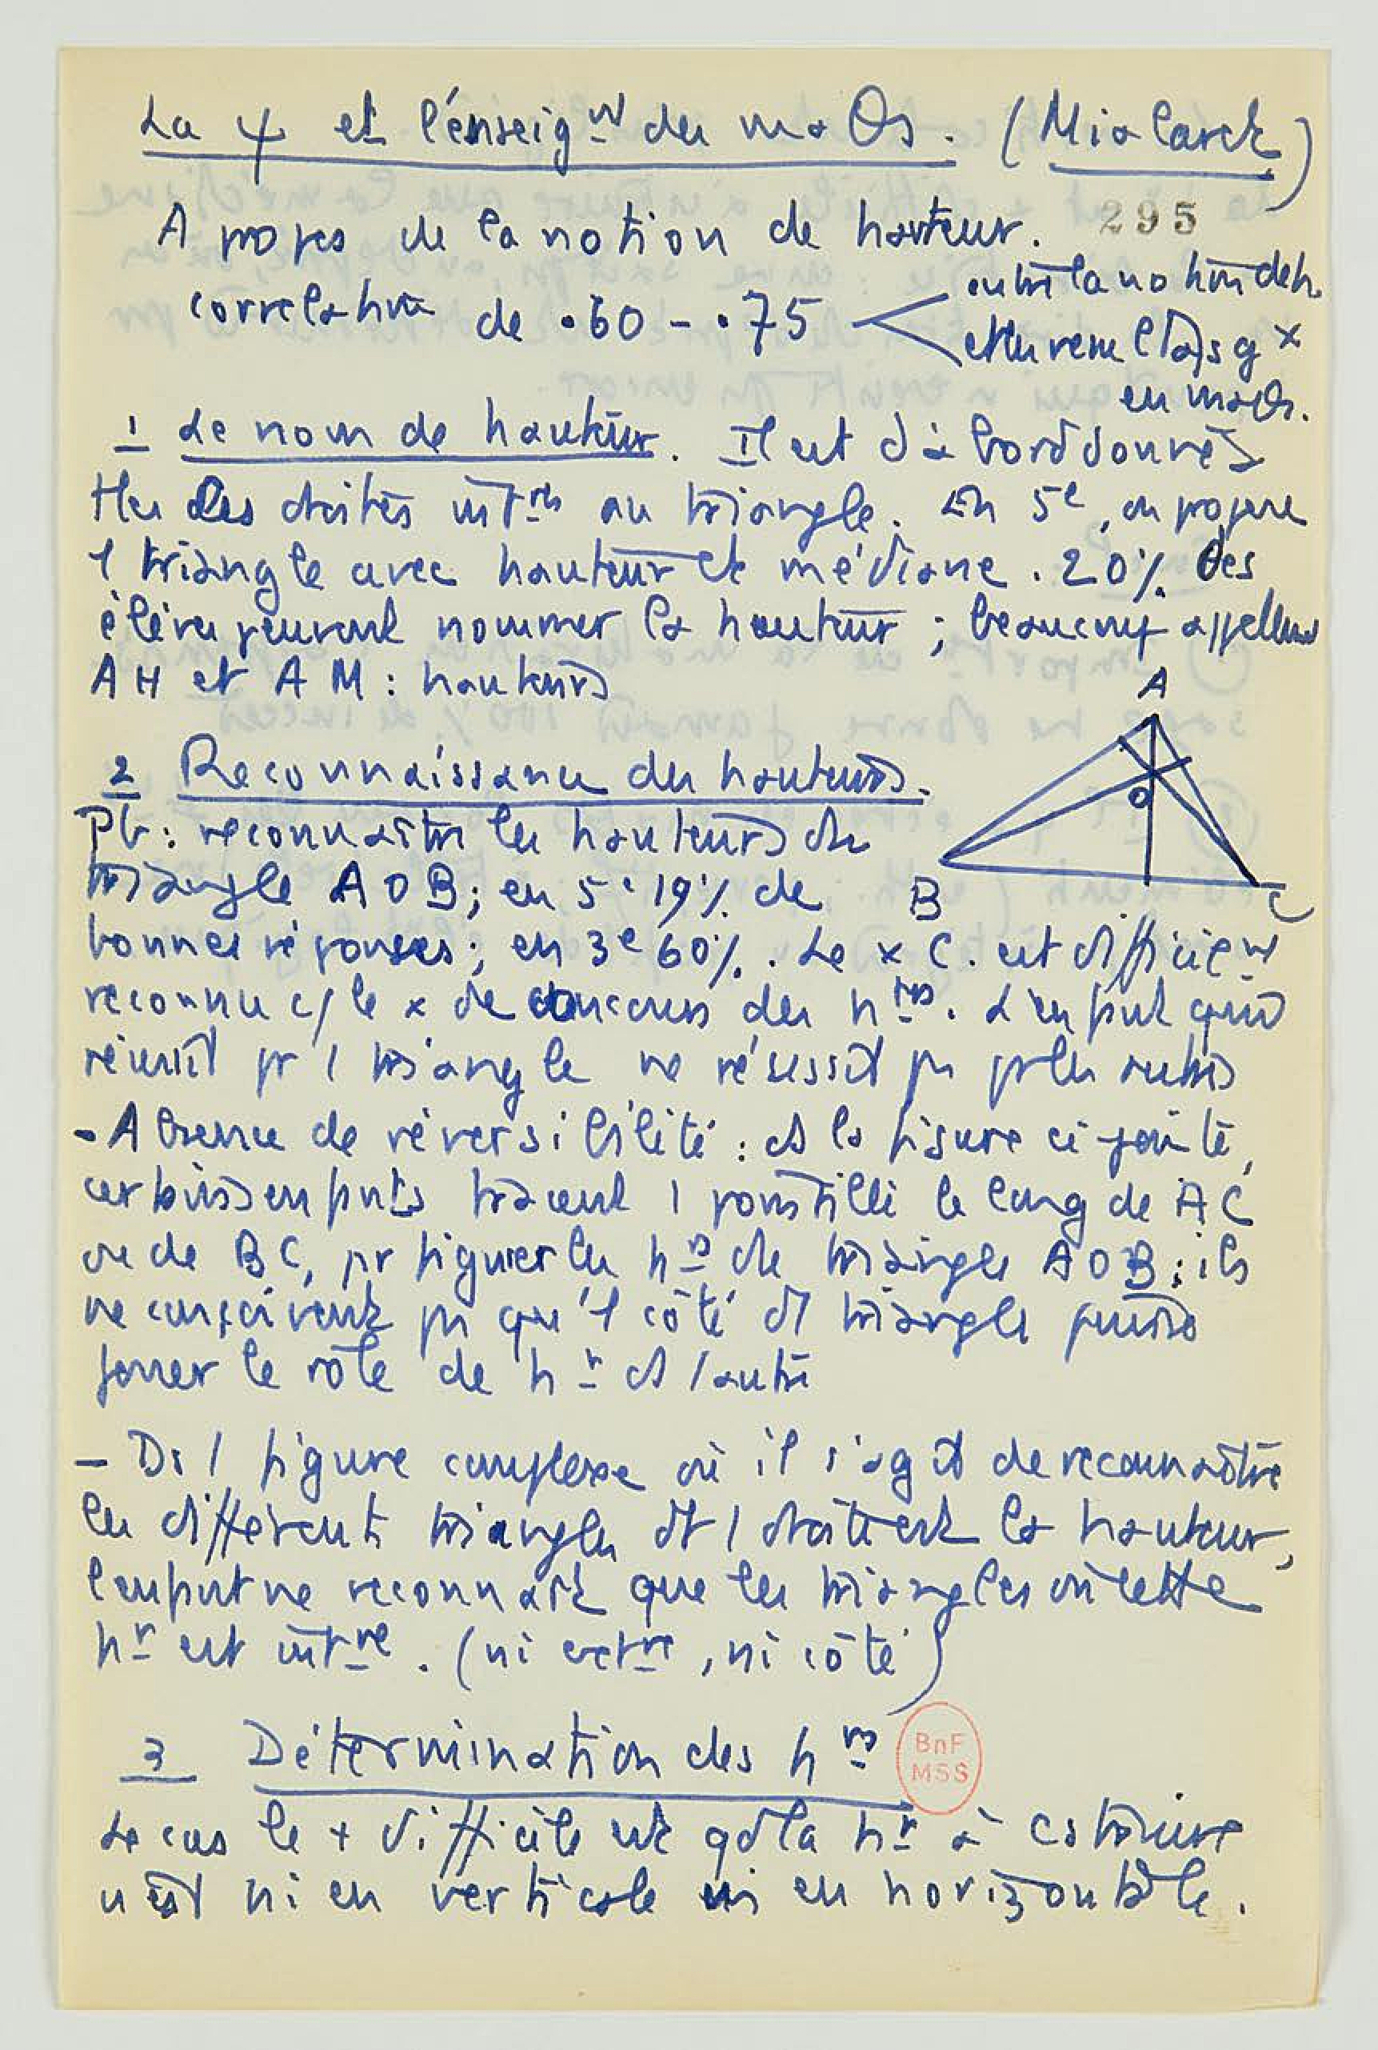 La ψ et l'enseignt des maths. (Mialarek)
295
A propos de la notion de hauteur.
corrélation de .60 - .75
entre la notion de h.
et niveau élèves gx
en maths.
1 Le nom de hauteur. Il est d'abord donné à
des droites intres au triangle. En 5e, on propose
1 triangle avec hauteur et médiane. 20% des
élèves peuvent nommer la hauteur ; beaucoup appellent
AH et AM : hauteurs
A
O
B
C
2 Reconnaissance des hauteurs.
Pb : reconnaître les hauteurs du
triangle AOB ; en 5e 19% de
bonnes réponses ; en 3e 60%. Le x C. est difficilemt
reconnu c/ le x de concours des htrs. L'enfant qui
réussit pr 1 triangle ne réussit ps pr les autres
- Absence de réversibilité : ds la figure ci-jointe,
certains enfants tracent 1 pointillé le long de AC
ou de BC, pr figurer les hrs du triangle AOB ; ils
ne conçoivent ps qu'1 côté d'1 triangle puisse
jouer le rôle de hr ds 1 autre
- Ds 1 figure complexe où il s'agit de reconnaître
les différents triangles dt 1 droite est la hauteur,
l'enfant ne reconnaît que les triangles où cette
hr est intre. (ni extre, ni côté)
3 Détermination des hrs
BnF
MSS
Le cas le + difficile est qd la hr à cstruire
n'est ni en verticale ni en horizontale.